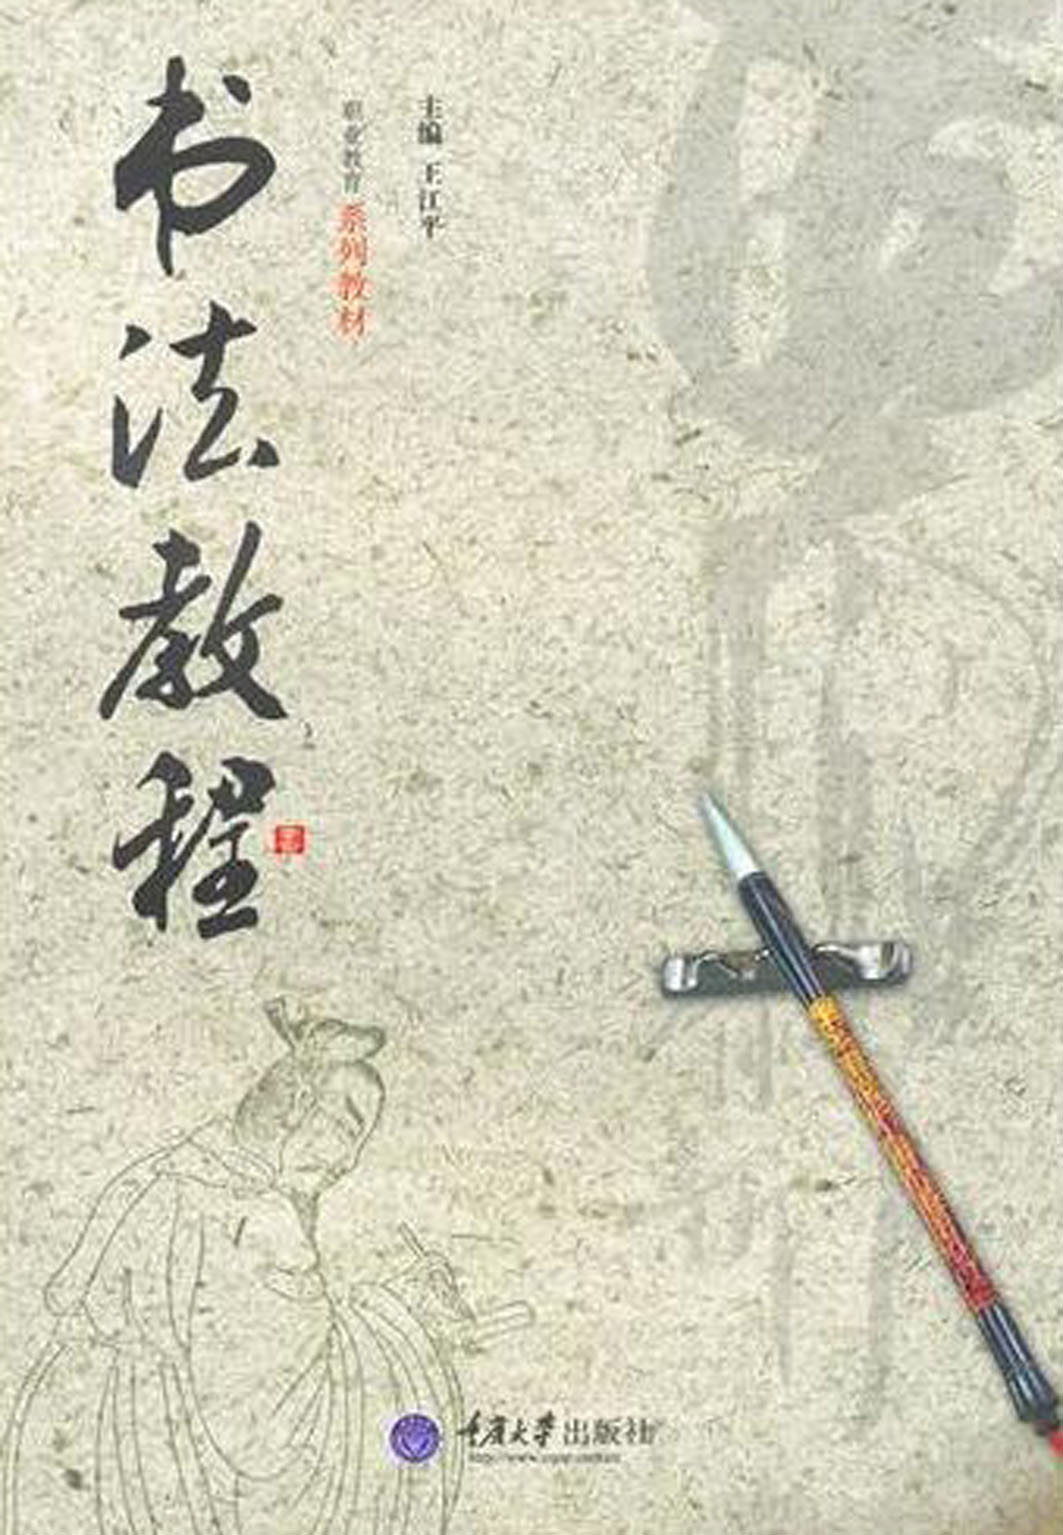 书法教程
职业教育 系列教材
主编 王江平
重庆大学出版社